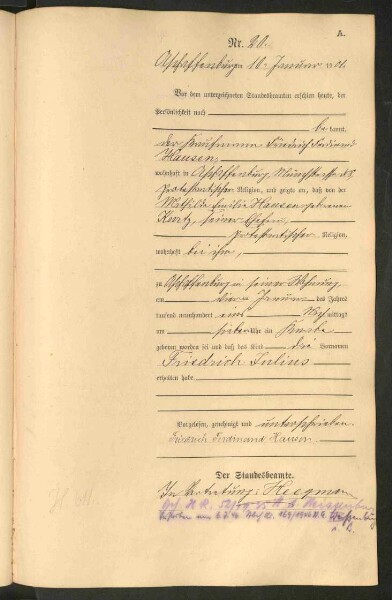 A.
Nr. 20.
Aschaffenburg am 10. Januar 1901.
Vor dem unterzeichneten Standesbeamten erschien heute, der
Persönlichkeit nach
be kannt,
der Kaufmann Friedrich Ferdinand
Hausen,
wohnhaft in Aschaffenburg,
protestantischer Religion, und zeigte an, daß von der
Mathilde Emilie Hausen, geborenen
Kurtz, seiner Ehefrau,
protestantischer Religion,
wohnhaft bei ihm,
zu Aschaffenburg in seiner Wohnung
am Januar des Jahres
tausend neunhundert eins Nachmittags
um sieben Uhr ein Knabe
geboren worden sei und daß das Kind die Vornamen
Friedrich Julius
erhalten habe
Vorgelesen, genehmigt und unterschrieben
Friedrich Ferdinand Hausen
Der Standesbeamte.
In Vertretung: Heegmann